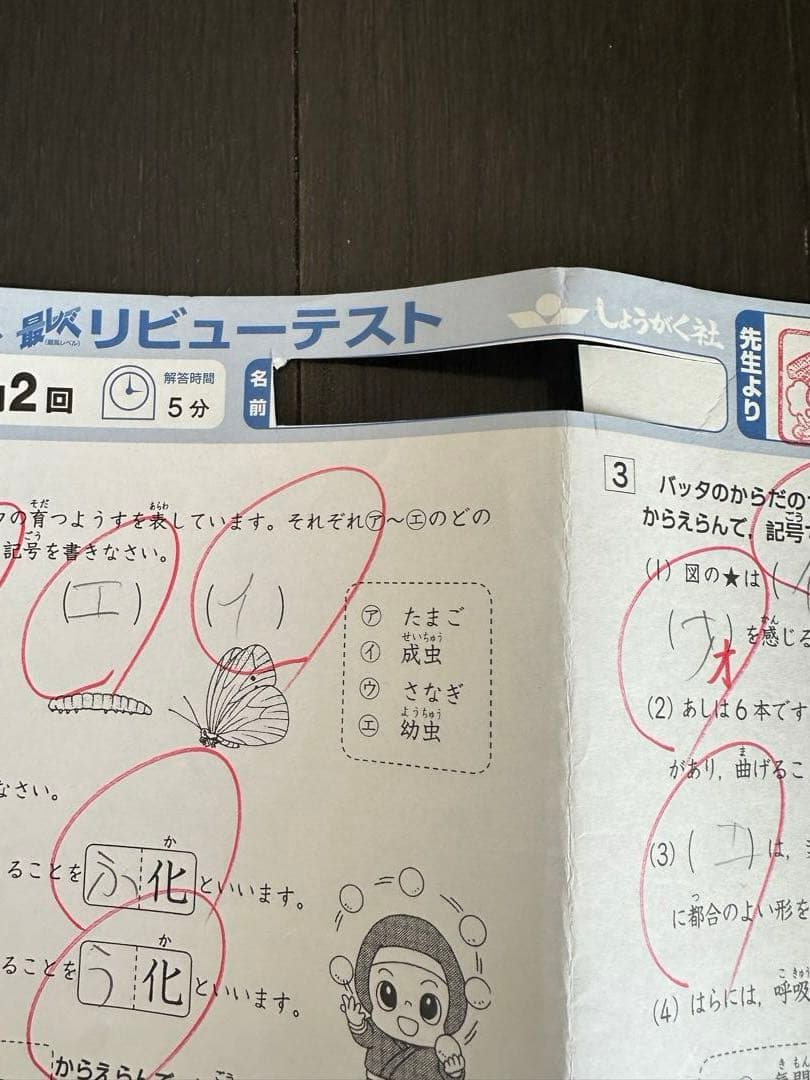 最レベ リビューテスト
(最高レベル)
しょうがく社
2回
解答時間
5分
名前
先生より
の育つようすを表しています。それぞれ㋐〜㋓のどの
そだ
あらわ
記号を書きなさい。
ごう
(エ) (イ)
㋐ たまご
㋑ 成虫
せいちゅう
㋒ さなぎ
㋓ 幼虫
ようちゅう
なさい。
ることをふ化といいます。
か
ることをう化といいます。
か
からえらんで
ごう
3 バッタのからだの
からえらんで,記号
ごう
(1) 図の★は(
(オ)を感じる
かん
オ
(2) あしは6本です
があり,曲げるこ
ま
(3) (エ)は,
に都合のよい形を
つ
(4) はらには,呼吸
こ きゅう
き もん